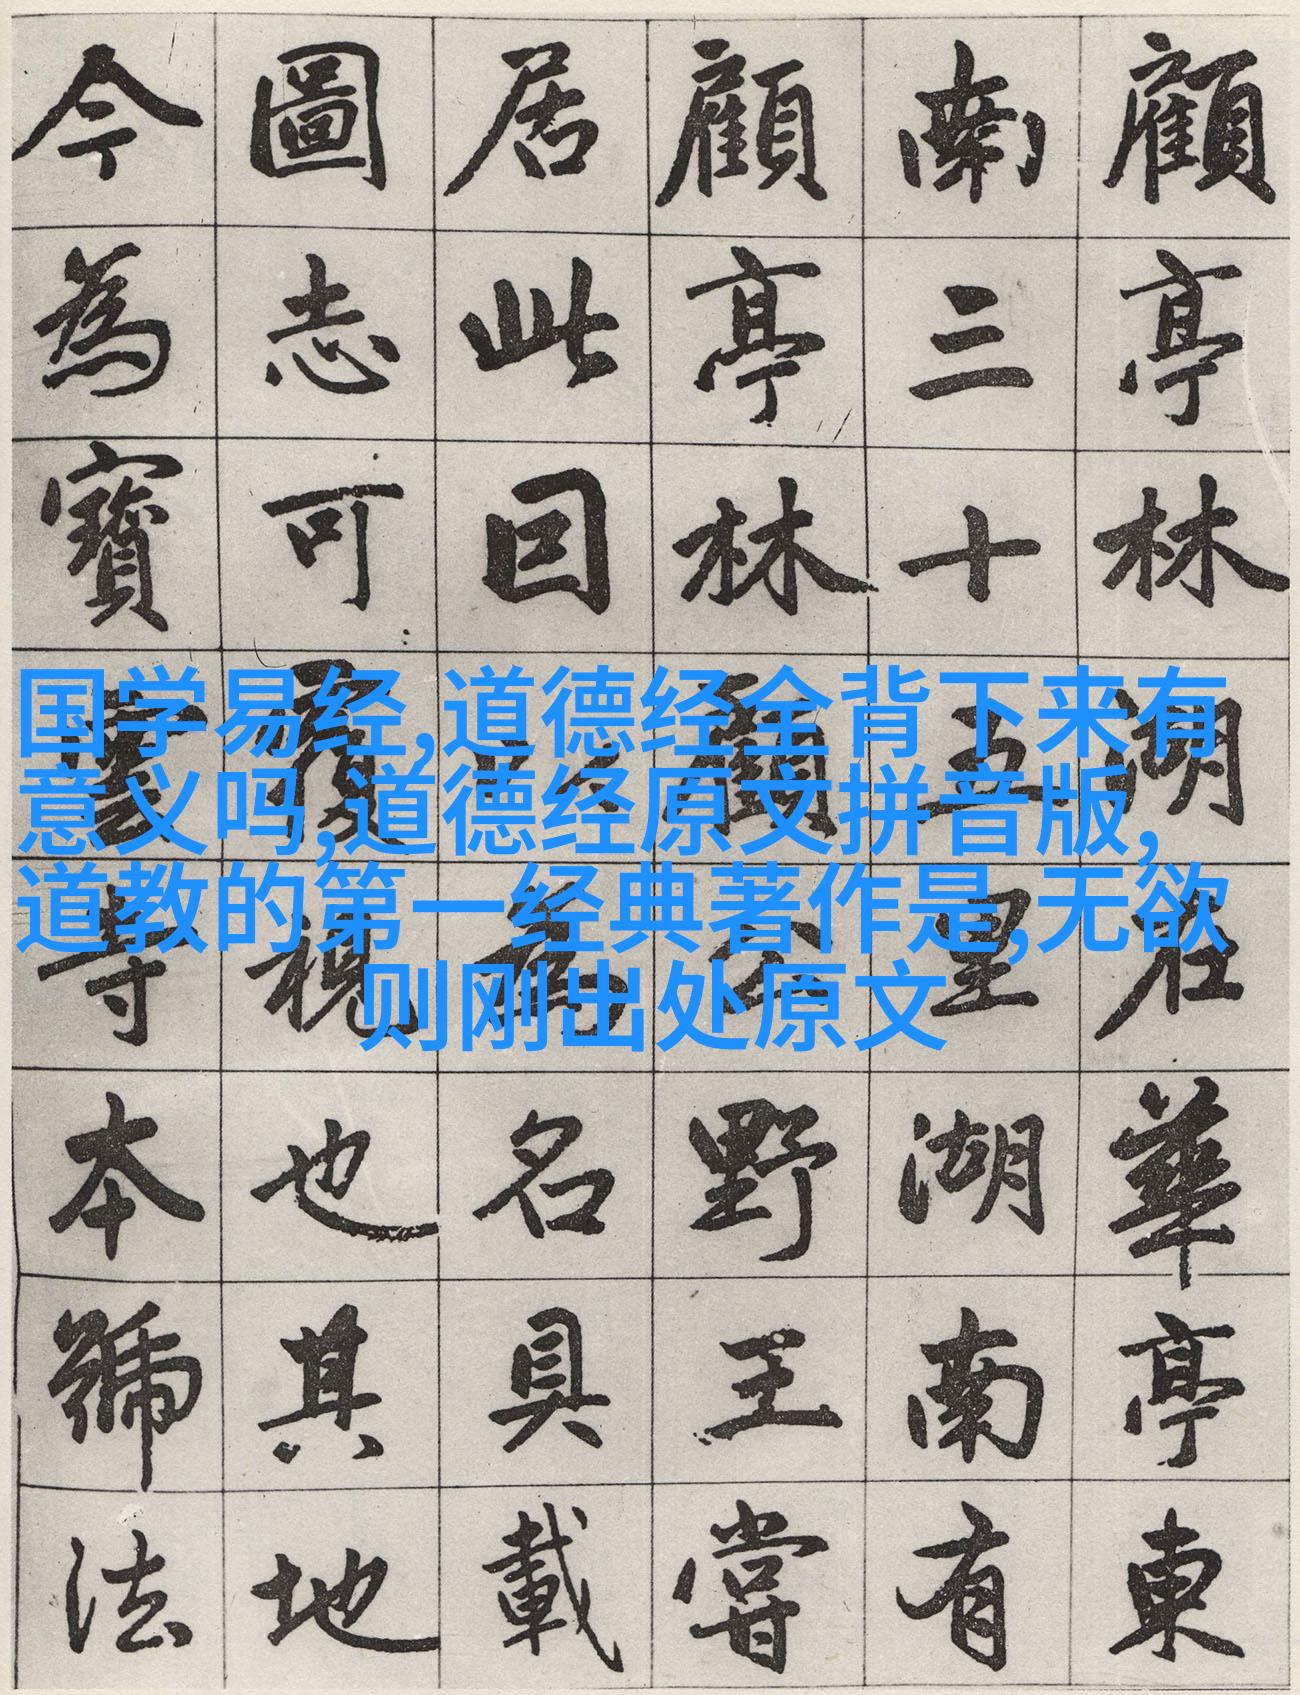 国学易经,道德经全背下来有
意义吗,道德经原文拼音版,
道教的第一经典著作是,无欲
则刚出处原文
顧亭林湖在華亭東
南三十五里湖南有
顧亭林顧公野王嘗
居此因以為名具載
圖志可覆視也其地
今為寶雲寺本號法